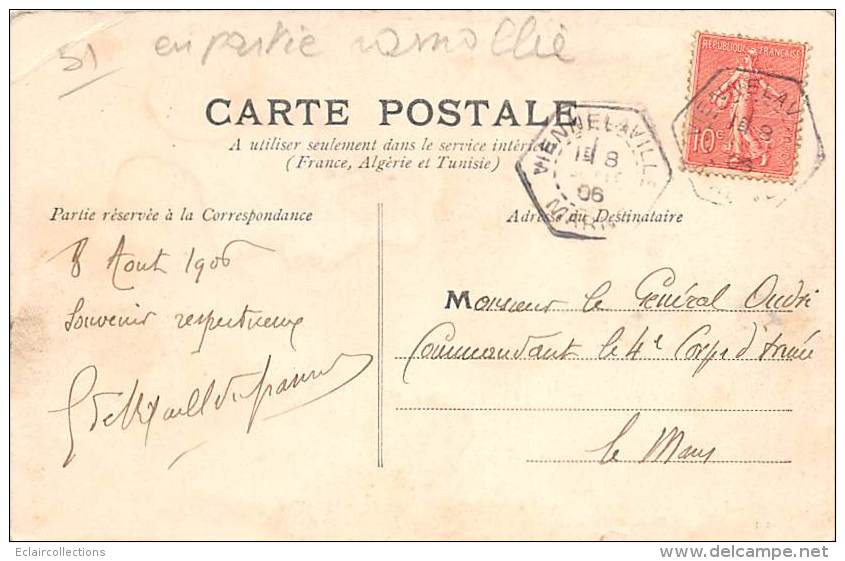 51 en partie ramollie
RÉPUBLIQUE FRANÇAISE
10c
CARTE POSTALE
A utiliser seulement dans le service intérieur
(France, Algérie et Tunisie)
VIENNE-LA-VILLE
8
06
MARNE
Partie réservée à la Correspondance
Adresse du Destinataire
8 Aout 1906
Souvenir respectueux
Monsieur le Général Oudri
Commandant le 4e Corps d'Armée
le Mans
Eclaircollections
www.delcampe.net